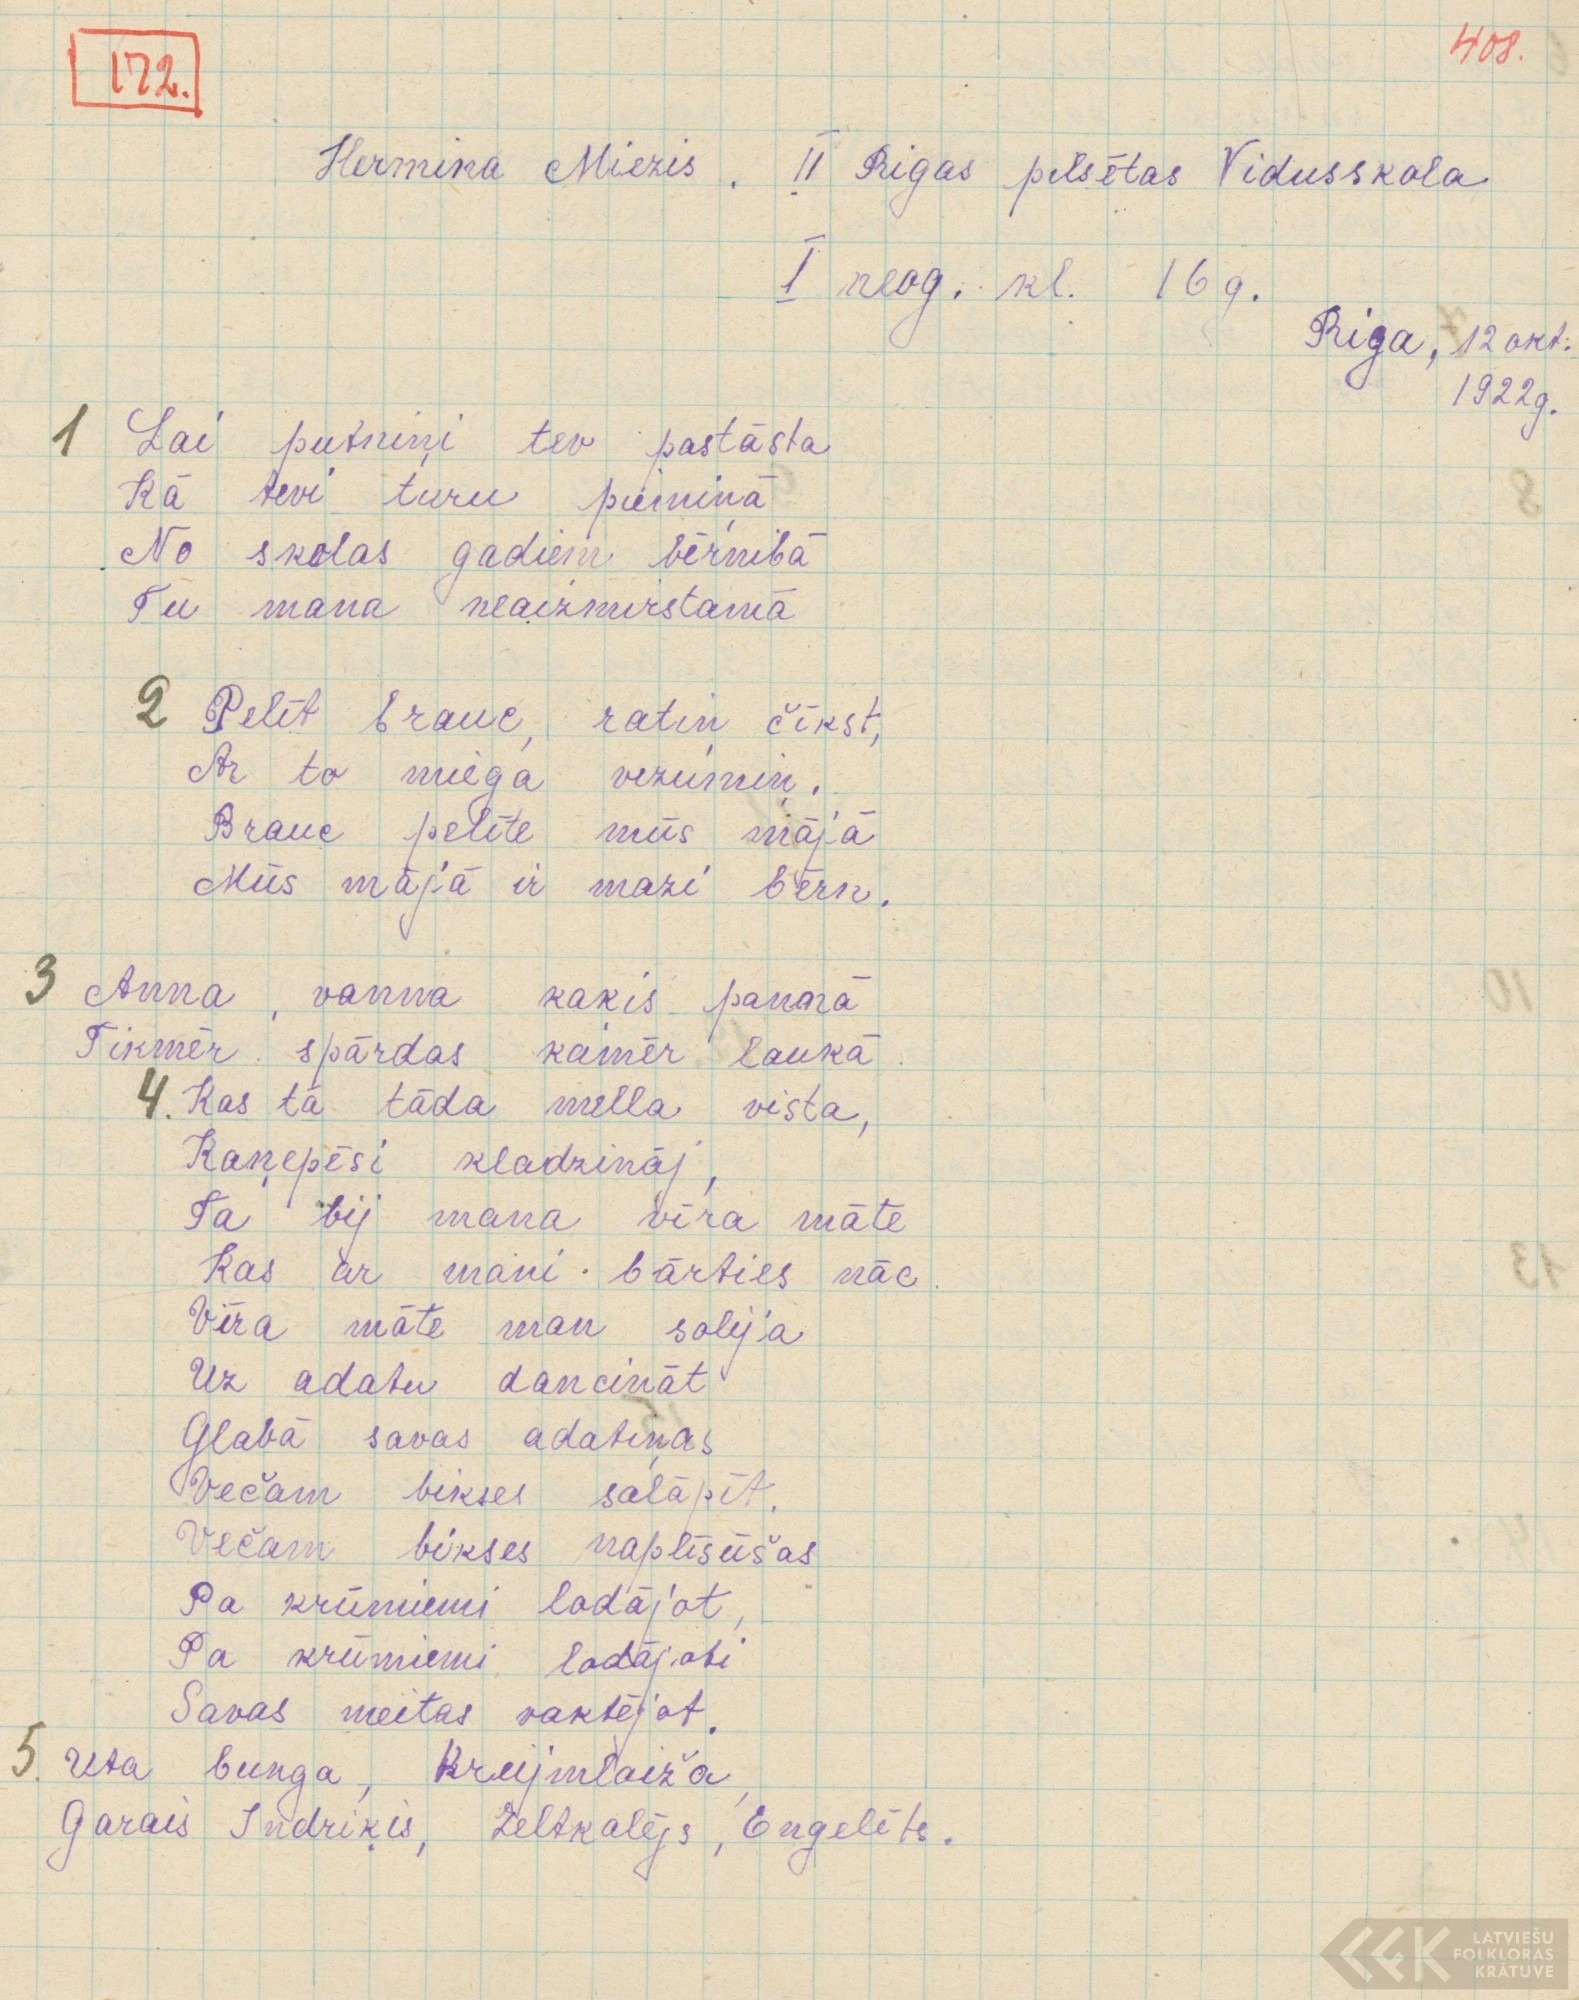 172.
408.
Hermina Miezis. II Rigas pilsētas Vidusskola
I neog. kl. 16 g.
Riga, 12 okt.
1922g.
1 Lai putniņi tev pastāsta
Kā tevi turu piemiņā
No skolas gadiem bērnibā
Tu mana neaizmirstamā
2 Pelīt brauc, ratiņ čīkst,
Ar to miega vezumiņ.
Brauc pelīte mūs mājā
Mūs mājā ir mazi bērn.
3 Anna, vanna kaķis pannā
Tikmēr spārdas kamēr laukā
4. Kas tā tāda mella vista,
Kaņepēsi kladzināj,
Ta bij mana vīra māte
Kas ar mani bārties nāc.
Vīra māte man solija
Uz adatu dancināt
Glabā savas adatiņas
Večam bikses salāpīt.
Večam bikses naplīsūšas
Pa krūmiemi lodājot,
Pa krūmiemi lodājoti
Savas meitas vaktējot.
5. Uta bunga, Kreijmlaiža,
Garais Indriķis, Zeltkalējs, Engelīts.
LATVIEŠU
FOLKLORAS
KRĀTUVE